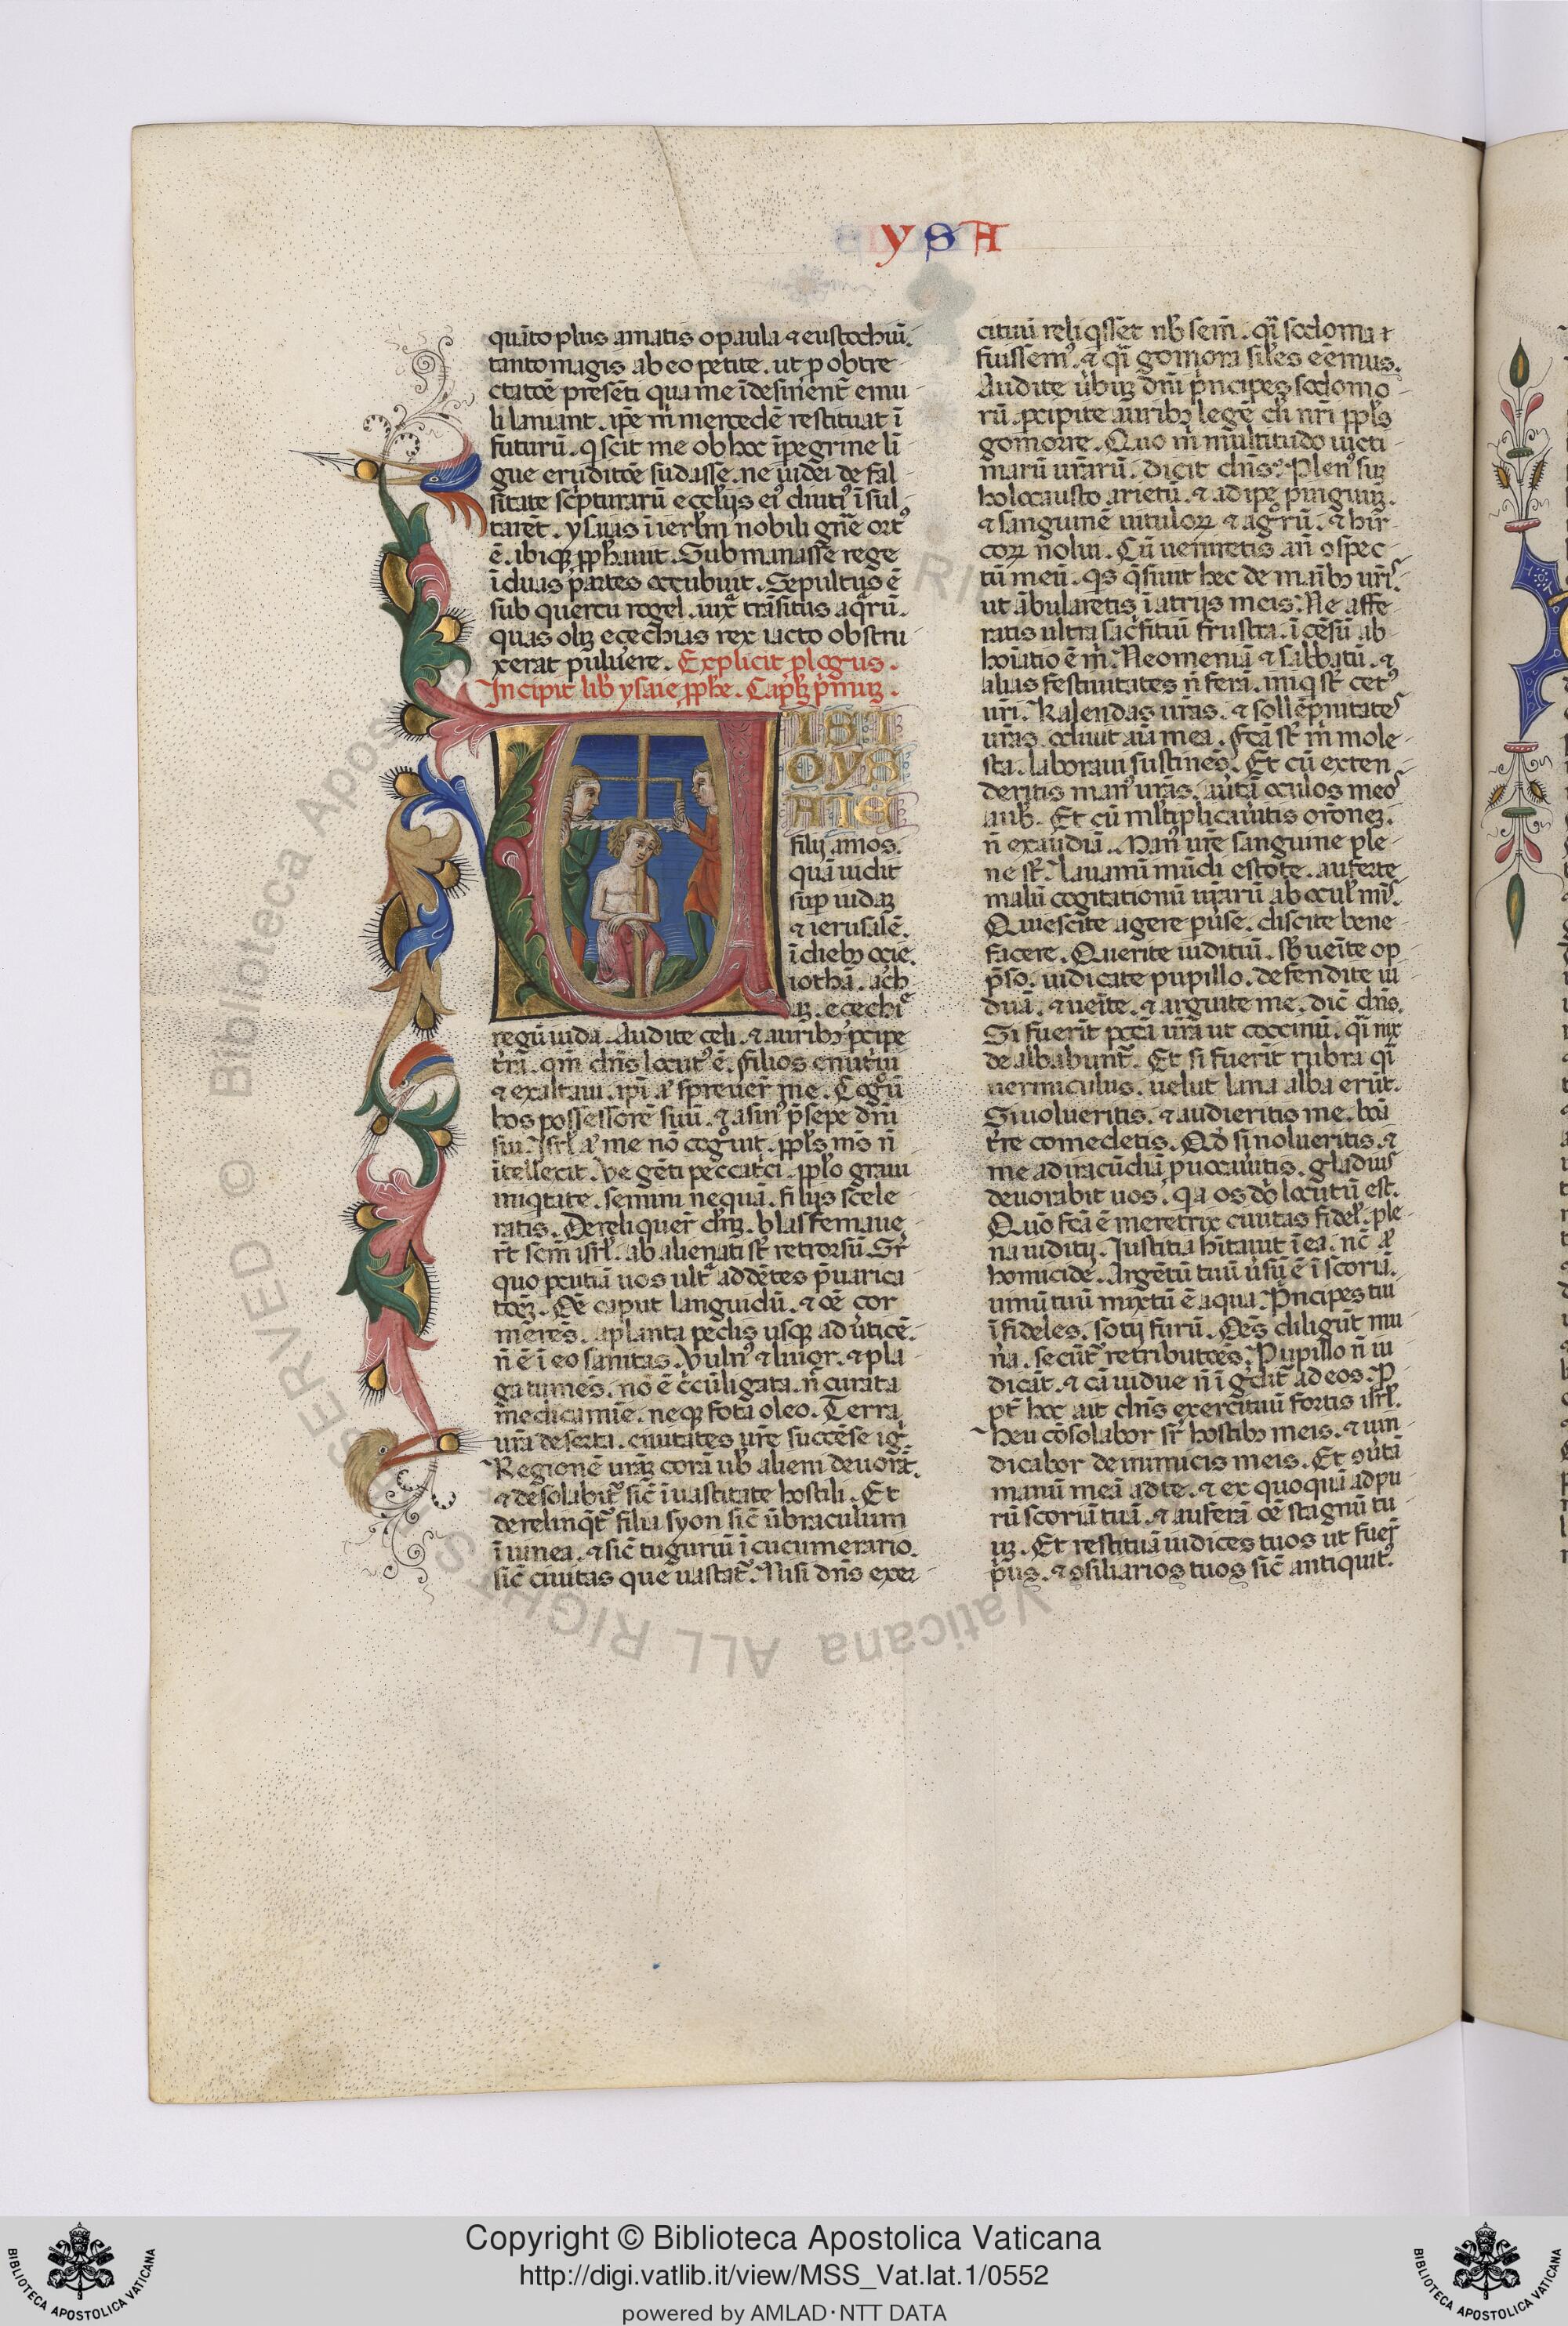 YSA
quāto plus amatis o paula ⁊ eustochiū.
tanto magis ab eo petite. ut p obtre-
ctatōe presēti qua me īdesinent̄ emu-
li laniant. ip̄e m̄ mercedē restituat ī
futurū. q scit me ob hoc īpegrine lī-
gue eruditōe sudasse. ne iudei de fal-
sitate sc̄pturarū ecc̄lijs ei᷒ diuti᷒ īsul-
tarēt. ysaias ī ierl̄m nobili gn̄e ort᷒
ē. ibiqꝫ ꝓph̄auit. Sub manasse rege
ī duas partes occubuit. Sepultus ē
sub quercu rogel. iux̄ trāsitus aq̄rū.
quas olīꝫ ecechias rex iacto obstru-
xerat puluere. Explicit plogus.
Incipit lib̄ ysaie ꝓph̄e. Cap̄lꝫ p̄muꝫ.
UISI
OYS
AIE
filij amos.
quā uidit
suꝑ iudaꝫ
⁊ ierusalē.
ī diebꝫ ocie.
iothā. ach
aꝫ. ecechie
regū iuda. Audite celi. ⁊ auribꝫ pcipe
t̄ra. qm̄ dn̄s locut᷒ ē. Filios enut̄ui
⁊ exaltaui. ip̄i aͧ spreuer̄ me. Cogū
bos possessorē suū. ⁊ asin᷒ p̄sepe dn̄i
sui. Isrl̄ aͧ me nō cogͦuit. ppl̄s m̄s n̄
ītellecit. Ve gēti peccatͥci. ppl̄o graui
iniqtate. semini nequā. filijs scele-
ratis. Dereliquer̄ dn̄ꝫ. blasfemaue-
rt̄ scm̄ isrl̄. abalienati st̄ retrorsū. Sr̄
quo pcutiā uos ultͣ addētes p̄uarica-
tōeꝫ. Oē caput languidū. ⁊ oē cor
merēs. a planta pedis usqꝫ ad uͥticē.
n̄ ē ī eo sanitas. Vuln᷒ ⁊ liuor. ⁊ pla-
ga tumēs. nō ē cͥcūligata. n̄ curata
medicamīe. neqꝫ fota oleo. Terra
ur̄a deserta. ciuitates ur̄e succēse ig
Regionē ur̄aꝫ corā ub̄ alieni deuorāt.
⁊ desolabit̄ sic̄ ī uastitate hostili. Et
derelinqt̄ filia syon sic̄ ūbraculum
ī uinea. ⁊ sic̄ tuguriū ī cucumerario.
sic̄ ciuitas que uastat̄. Nisi dn̄s exer-
cituū reliqsset nb̄ sem̄. q̄i sodoma
fuissem᷒. ⁊ q̄i gomora siles eēmus.
Audite ūbuꝫ dn̄i p̄ncipes sodomo-
rū. pcipite auribꝫ legē di nr̄i ppl̄s
gomorre. Quo m̄ multitudo uicti-
marū ur̄arū. dicit dn̄s? Plen᷒ suꝫ
holocausto arietū. ⁊ adipe pinguiuꝫ.
⁊ sanguinē uitulorꝫ ⁊ agͦrū. ⁊ hir-
corꝫ nolui. Cū ueniretis an̄ ꝯspec-
tū meū. qs q̄siuit hec de māibꝫ ur̄is.
ut ābularetis ī atrijs meis? Ne affe-
ratis ultra sac̄fitiū frustra. īcēsū ab-
hoīatio ē m̄. Neomeniā ⁊ sabbatū. ⁊
alias festiuitates n̄ ferā. iniq st̄ cet᷒
ur̄i. Kalendas ur̄as. ⁊ sollēpnitates
ur̄as odiuit aīa mea. Fc̄a st̄ m̄ mole-
sta. laboraui sustinēs. Et cū exten-
deritis man᷒ ur̄as. auͥtā oculos meos
a ub̄. Et cū ml̄tiplicauͥitis orōneꝫ.
n̄ exaudiā. Man᷒ ur̄e sanguine ple-
ne st̄. Lauamī mūdi estote. auferte
malū cogitationū ur̄arū ab ocul̄ mīs.
Quiescite agere puse. discite bene-
facere. Querite iuditiū. sb̄ueīte op-
p̄so. iudicate pupillo. defendite ui-
duā. ⁊ ueīte. ⁊ arguite me. dic̄ dn̄s.
Si fuerīt pcc̄a ur̄a ut coccinū. q̄i nix
dealbabunt̄. Et si fuerīt rubra q̄i
uermiculus. uelut lana alba erūt.
Si uolueritis. ⁊ audieritis me. boā
t̄re comedetis. Qd̄ si nolueritis. ⁊
me ad iracūdiā puocauͥitis. gladius
deuorabit uos. qa os dn̄i locutū est.
Quō fc̄a ē meretrix ciuitas fidel̄. ple-
na iuditij. Iustitia hītauit ī ea. nc̄ aͧ
homicide. Argētū tuū uͥsū ē ī scoriā.
uinū tuū mixtū ē aqua. P̄ncipes tui
īfideles. sotij furū. Oēs diligūt mu-
na. secūt̄ retributōes. Pupillo n̄ iu-
dicāt. ⁊ cā uidue n̄ īgdit̄ ad eos. P
pt̄ hoc ait dn̄s exercituū fortis isrl̄.
Heu cōsolabor sr̄ hostibꝫ meis. ⁊ uin-
dicabor de inimicis meis. Et ꝯuͥtā
manū meā ad te. ⁊ excoquā ad pu-
rū scoriā tuā. ⁊ auferā oē stagnū tu-
uꝫ. Et restituā iudices tuos ut fuer̄
p̄us. ⁊ ꝯsiliarios tuos sic̄ antiquit᷒.
Copyright © Biblioteca Apostolica Vaticana
http://digi.vatlib.it/view/MSS_Vat.lat.1/0552
powered by AMLAD·NTT DATA
BIBLIOTECA APOSTOLICA VATICANA
BIBLIOTECA APOSTOLICA VATICANA
© Biblioteca Apostolica Vaticana ALL RIGHTS RESERVED